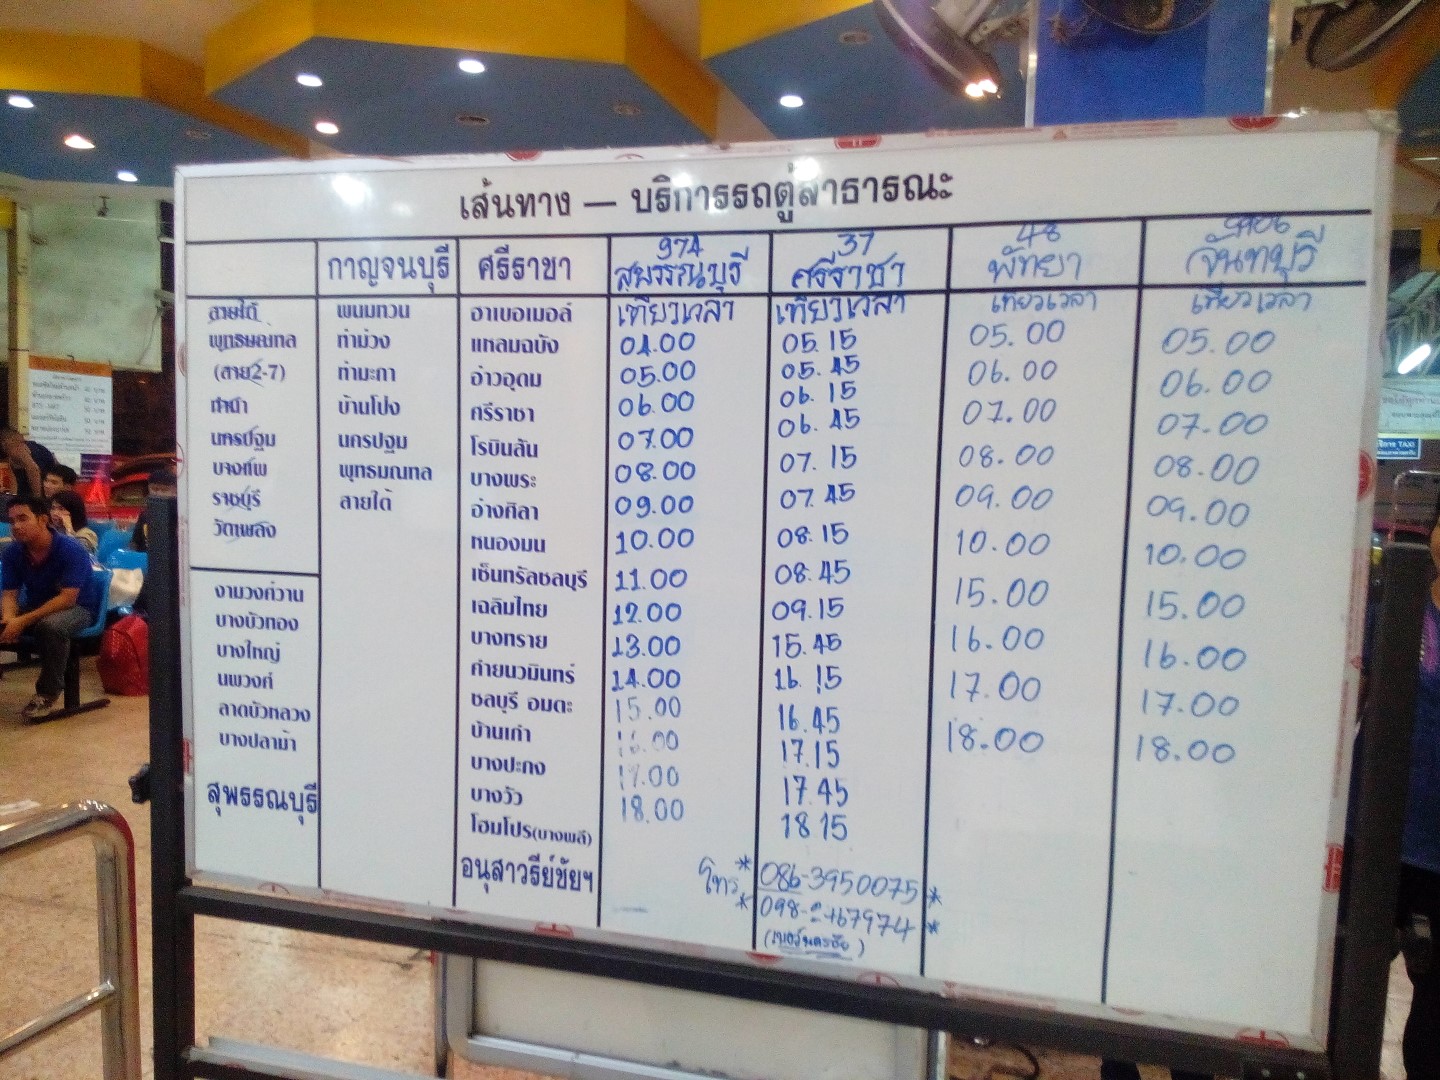 เส้นทาง — บริการรถตู้สาธารณะ
กาญจนบุรี
ศรีราชา
974
สุพรรณบุรี
37
ศรีราชา
48
พัทยา
9906
จันทบุรี
สายใต้
พุทธมณฑล
(สาย2-7)
ทำนำ
นครปฐม
บางแพ
ราชบุรี
วัดเพลง
งามวงศ์วาน
บางบัวทอง
บางใหญ่
นพวงศ์
ลาดบัวหลวง
บางปลาม้า
สุพรรณบุรี
พนมทวน
ท่าม่วง
ท่ามะกา
บ้านโป่ง
นครปฐม
พุทธมณฑล
สายใต้
ฮาเบอเมอล์
แหลมฉบัง
อ่าวอุดม
ศรีราชา
โรบินสัน
บางพระ
อ่างศิลา
หนองมน
เซ็นทรัลชลบุรี
เฉลิมไทย
บางทราย
ค่ายนวมินทร์
ชลบุรี อมตะ
บ้านเก่า
บางปะกง
บางวัว
โฮมโปร(บางพลี)
อนุสาวรีย์ชัยฯ
เที่ยวเวลา
04.00
05.00
06.00
07.00
08.00
09.00
10.00
11.00
12.00
13.00
14.00
15.00
16.00
17.00
18.00
เที่ยวเวลา
05.15
05.45
06.15
06.45
07.15
07.45
08.15
08.45
09.15
15.45
16.15
16.45
17.15
17.45
18.15
เที่ยวเวลา
05.00
06.00
07.00
08.00
09.00
10.00
15.00
16.00
17.00
18.00
เที่ยวเวลา
05.00
06.00
07.00
08.00
09.00
10.00
15.00
16.00
17.00
18.00
โทร * 086-3950075 *
*
*
TAXI